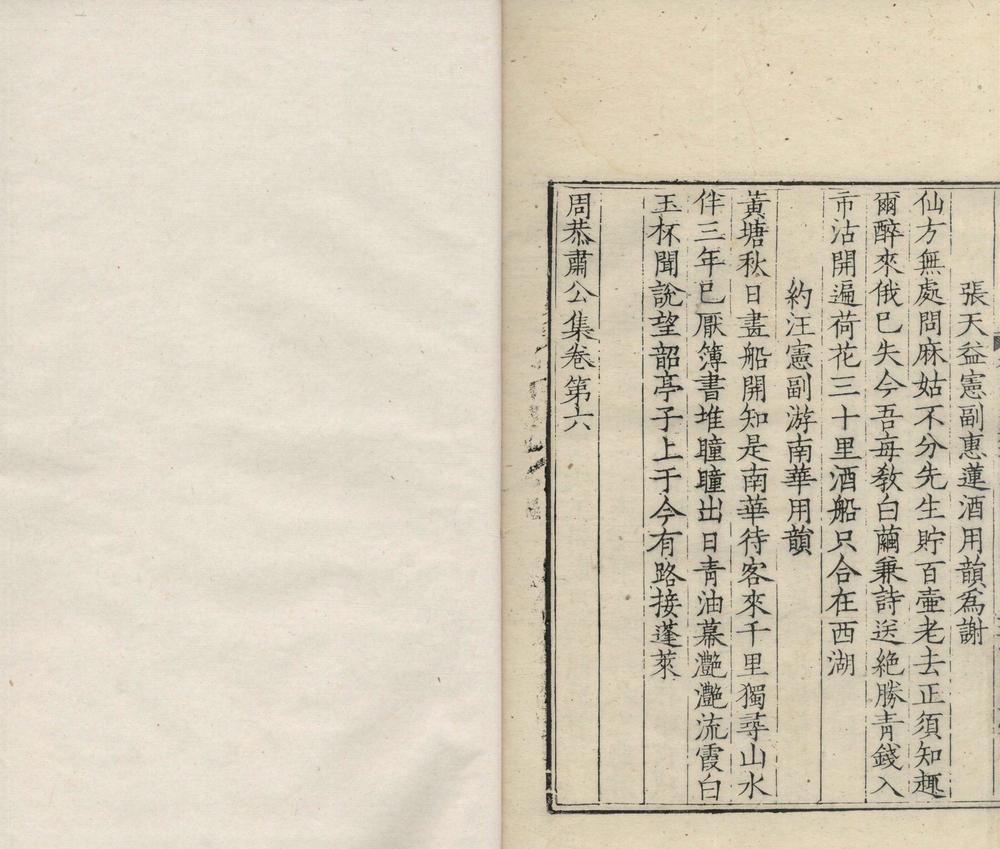 張天益憲副惠蓮酒用韻爲謝
仙方無處問麻姑不分先生貯百壷老去正須知趣
爾醉來俄已失今吾每教白繭兼詩送絶勝青錢入
市沽開遍荷花三十里酒船只合在西湖
約汪憲副游南華用韻
黃塘秋日畫船開知是南華待客來千里獨尋山水
伴三年已厭簿書堆瞳瞳出日青油幕灧灧流霞白
玉杯聞說望韶亭子上于今有路接蓬萊
周恭肅公集卷第六